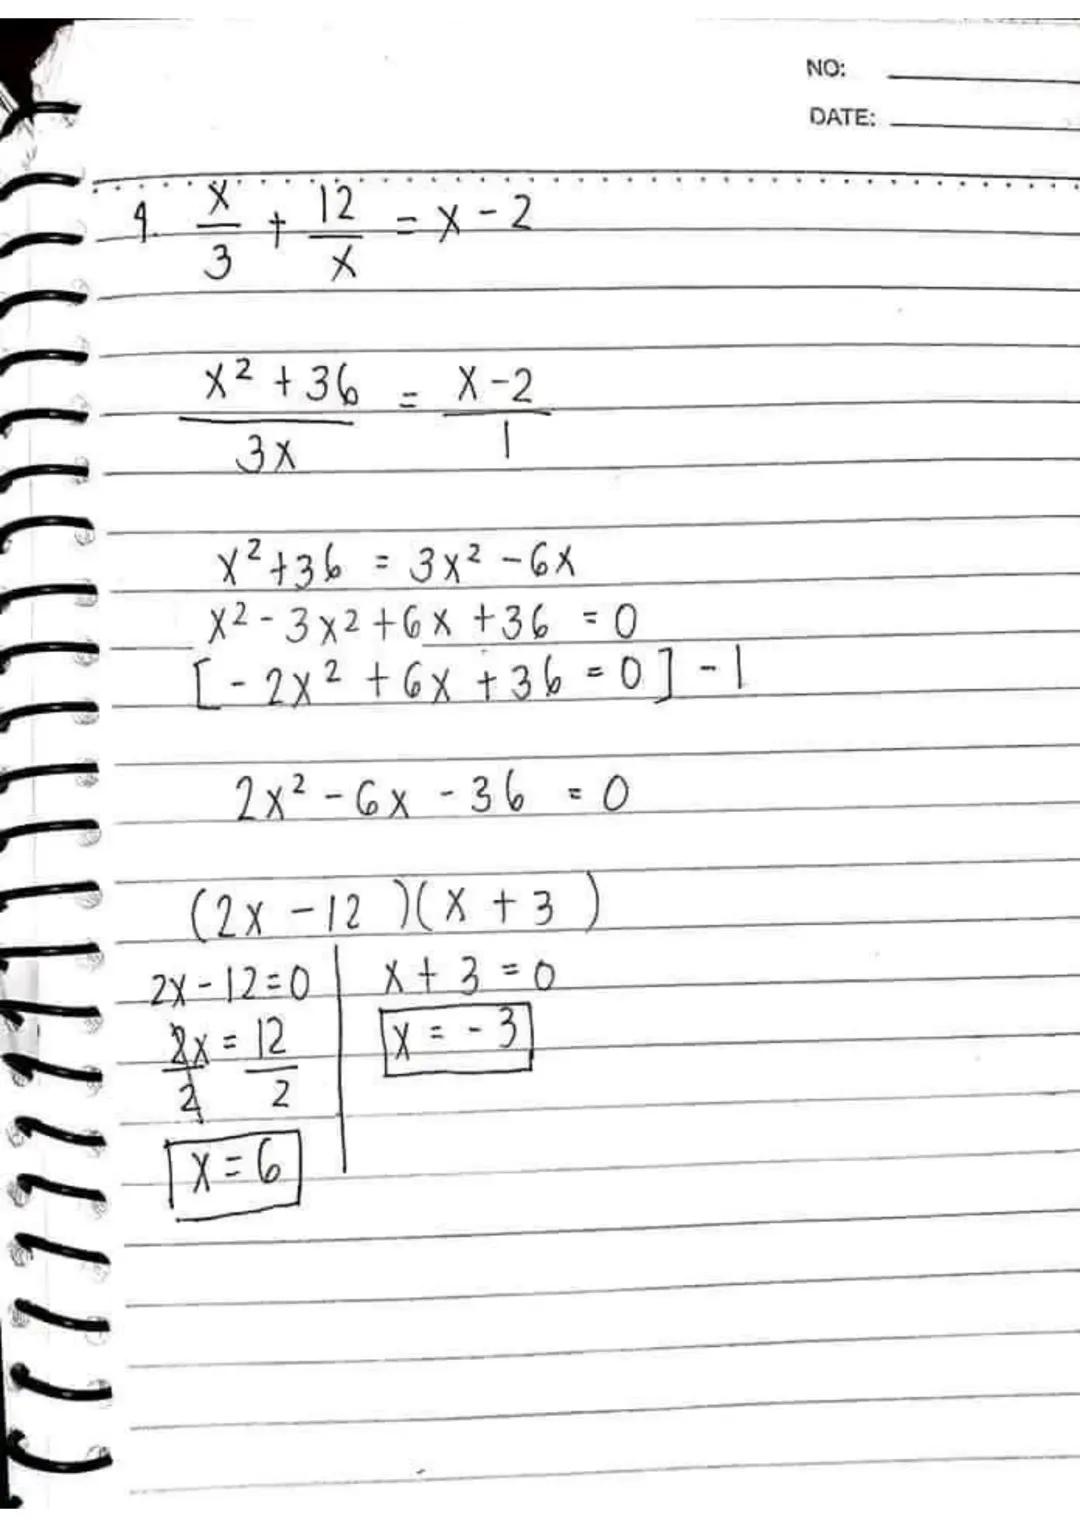 NO:
DATE:
9. x/3 + 12/x = x - 2
x² + 36 / 3x = x - 2 / 1
x² + 36 = 3x² - 6x
x² - 3x² + 6x + 36 = 0
[ - 2x² + 6x + 36 = 0 ] - 1
2x² - 6x - 36 = 0
(2x - 12 )(x + 3 )
2x - 12 = 0 | x + 3 = 0
2x/2 = 12/2 | x = - 3
x = 6